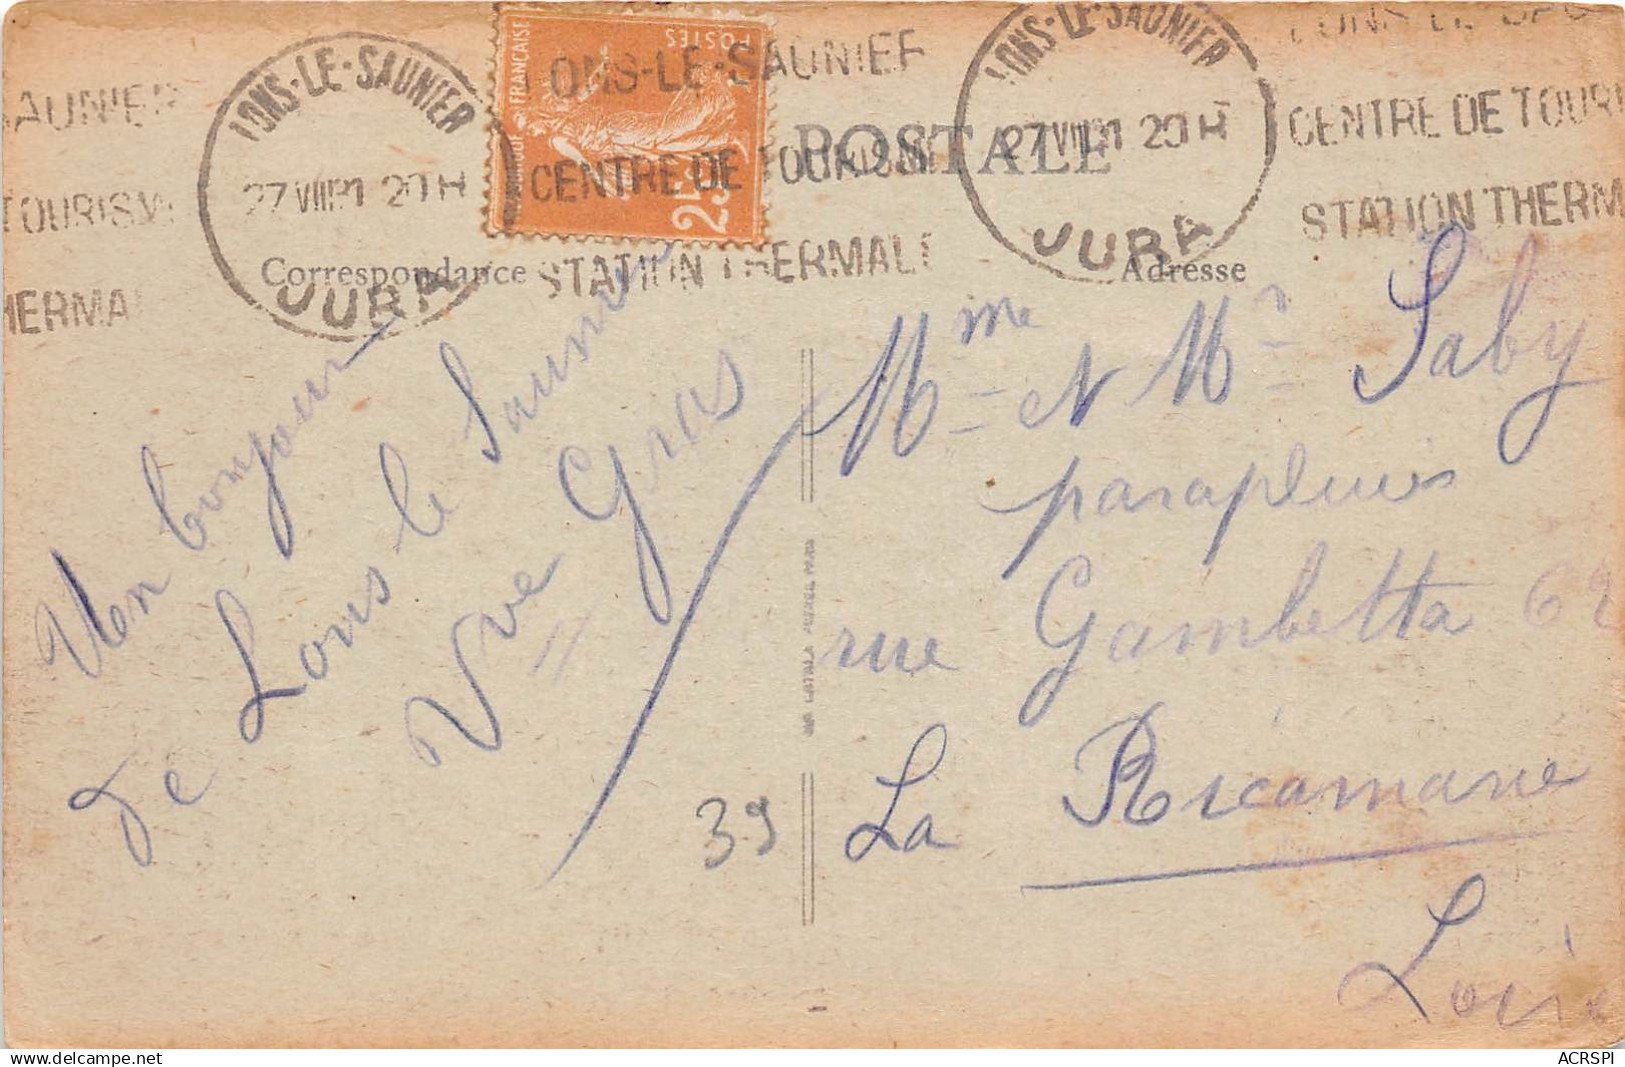 LONS-LE-SAUNIER
27 VIII 31 20 H
JURA
LONS-LE-SAUNIER
27 VIII 31 20 H
JURA
SAUNIER
TOURISM
HERMA
FRANÇAISE
POSTES
25
ONS-LE-SAUNIER
CENTRE DE TOURISM
STATION THERMALE
CENTRE DE TOURI
STATION THERM
POSTALE
Correspondance
Adresse
Un bonjour
de Lons le Saunier
Vve Gras
39
Mme et Mr Saby
parapluies
rue Gambetta 62
La Ricamarie
Loire
ACRSPI